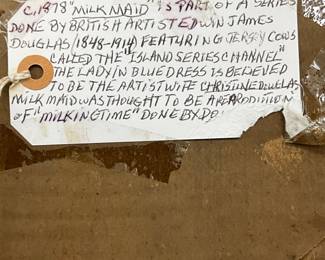 C, 1878 "MILK MAID" IS PART OF A SERIES
DONE BY BRITISH ARTIST EDWIN JAMES
DOUGLAS (1848-1914) FEATURING JERSEY COWS
CALLED THE "ISLAND SERIES CHANNEL"
THE LADY IN BLUE DRESS IS BELIEVED
TO BE THE ARTIST WIFE CHRISTINE DOUGLAS
MILK MAID WAS THOUGHT TO BE A
OF "MILKING TIME" DONE BY DO